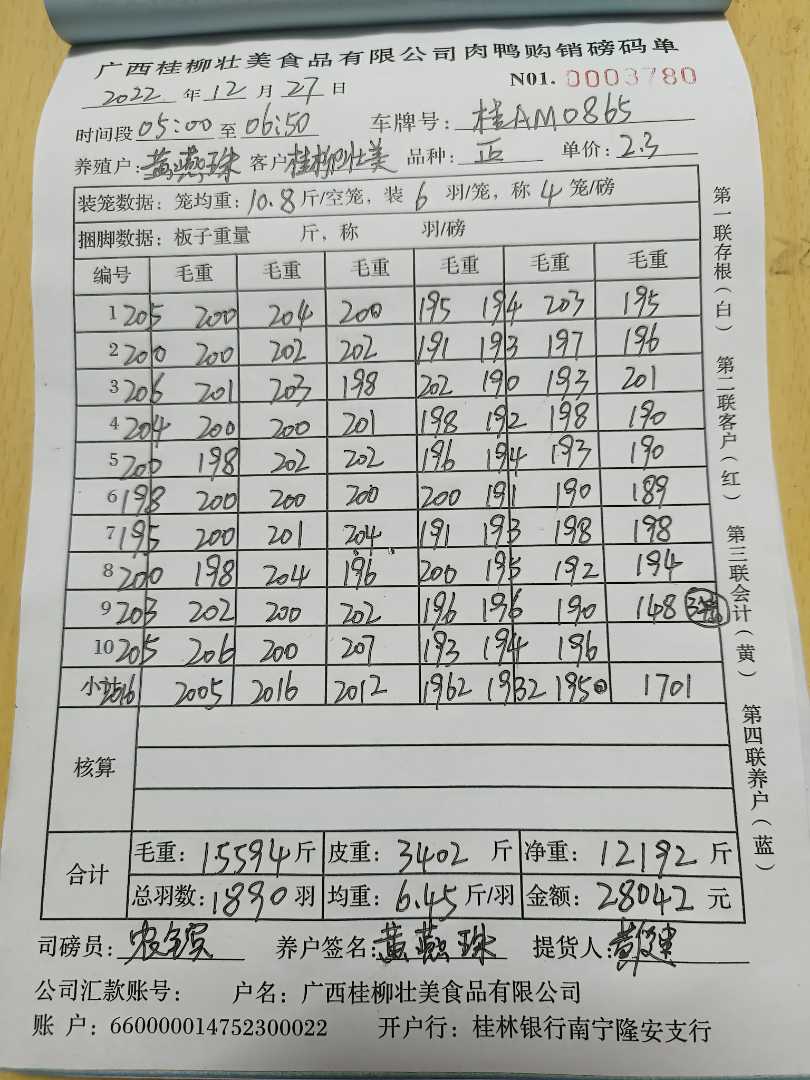 广西桂柳壮美食品有限公司肉鸭购销磅码单
2022 年 12 月 27 日 N01. 0003780
时间段 05:00 至 06:50 车牌号: 桂AM0865
养殖户: 黄燕珠 客户 桂柳壮美 品种: 正 单价: 2.3
装笼数据: 笼均重: 10.8 斤/空笼, 装 6 羽/笼, 称 4 笼/磅
捆脚数据: 板子重量 斤, 称 羽/磅
编号 毛重 毛重 毛重 毛重 毛重 毛重
1 205 200 204 200 195 194 203 195
2 200 200 202 202 191 193 197 196
3 206 201 203 198 202 190 193 201
4 204 200 200 201 198 192 198 190
5 200 198 202 202 196 194 193 190
6 198 200 200 200 200 191 190 189
7 195 200 201 204 191 193 198 198
8 200 198 204 196 200 195 192 194
9 203 202 200 202 196 196 190 148
10 205 206 200 207 193 194 196
小计 2016 2005 2016 2012 1962 1932 1950 1701
核算
合计
毛重: 15594 斤 皮重: 3402 斤 净重: 12192 斤
总羽数: 1890 羽 均重: 6.45 斤/羽 金额: 28042 元
司磅员: 养户签名: 黄燕珠 提货人:
公司汇款账号: 户名: 广西桂柳壮美食品有限公司
账 户: 660000014752300022 开户行: 桂林银行南宁隆安支行
第一联存根(白) 第二联客户(红) 第三联会计(黄) 第四联养户(蓝)